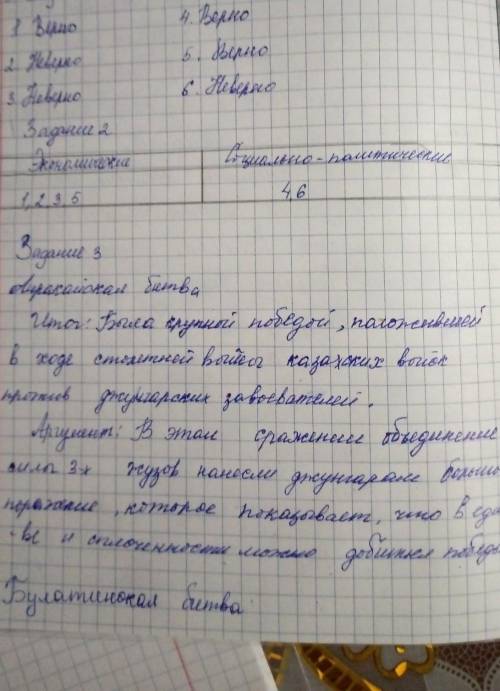 1. Верно 4. Верно
2. Неверно 5. Верно
3. Неверно 6. Неверно
Задание 2
Экономические Социально-политические
1, 2, 3, 5 4,6
Задание 3
Аңракайская битва
Итог: Была крупной победой, положившей
в ходе столетней войны казахских войск
против джунгарских завоевателей.
Аргумент: В этом сражении объединение
силы 3-х жузов нанесли джунгарам больш
поражение, которое показывает, что в еди
-ве и сплоченности можно добиться победы
Булатинская битва